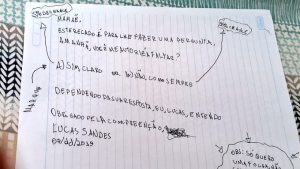 MAMÃE.
ESTE RECADO É PARA LHE FAZER UMA PERGUNTA,
AMANHÃ, VOCÊ ME AUTORIZA FALTAR?
A) SIM, CLARO OU B) NÃO, COMO SEMPRE
DEPENDENDO DA SUA RESPOSTA, EU, LUCAS, ENTENDO
OBRIGADO PELA COMPREENÇÃO,
LUCAS SANDES
OBS: SÓ QUERO
UMA FOLGA, NÃO